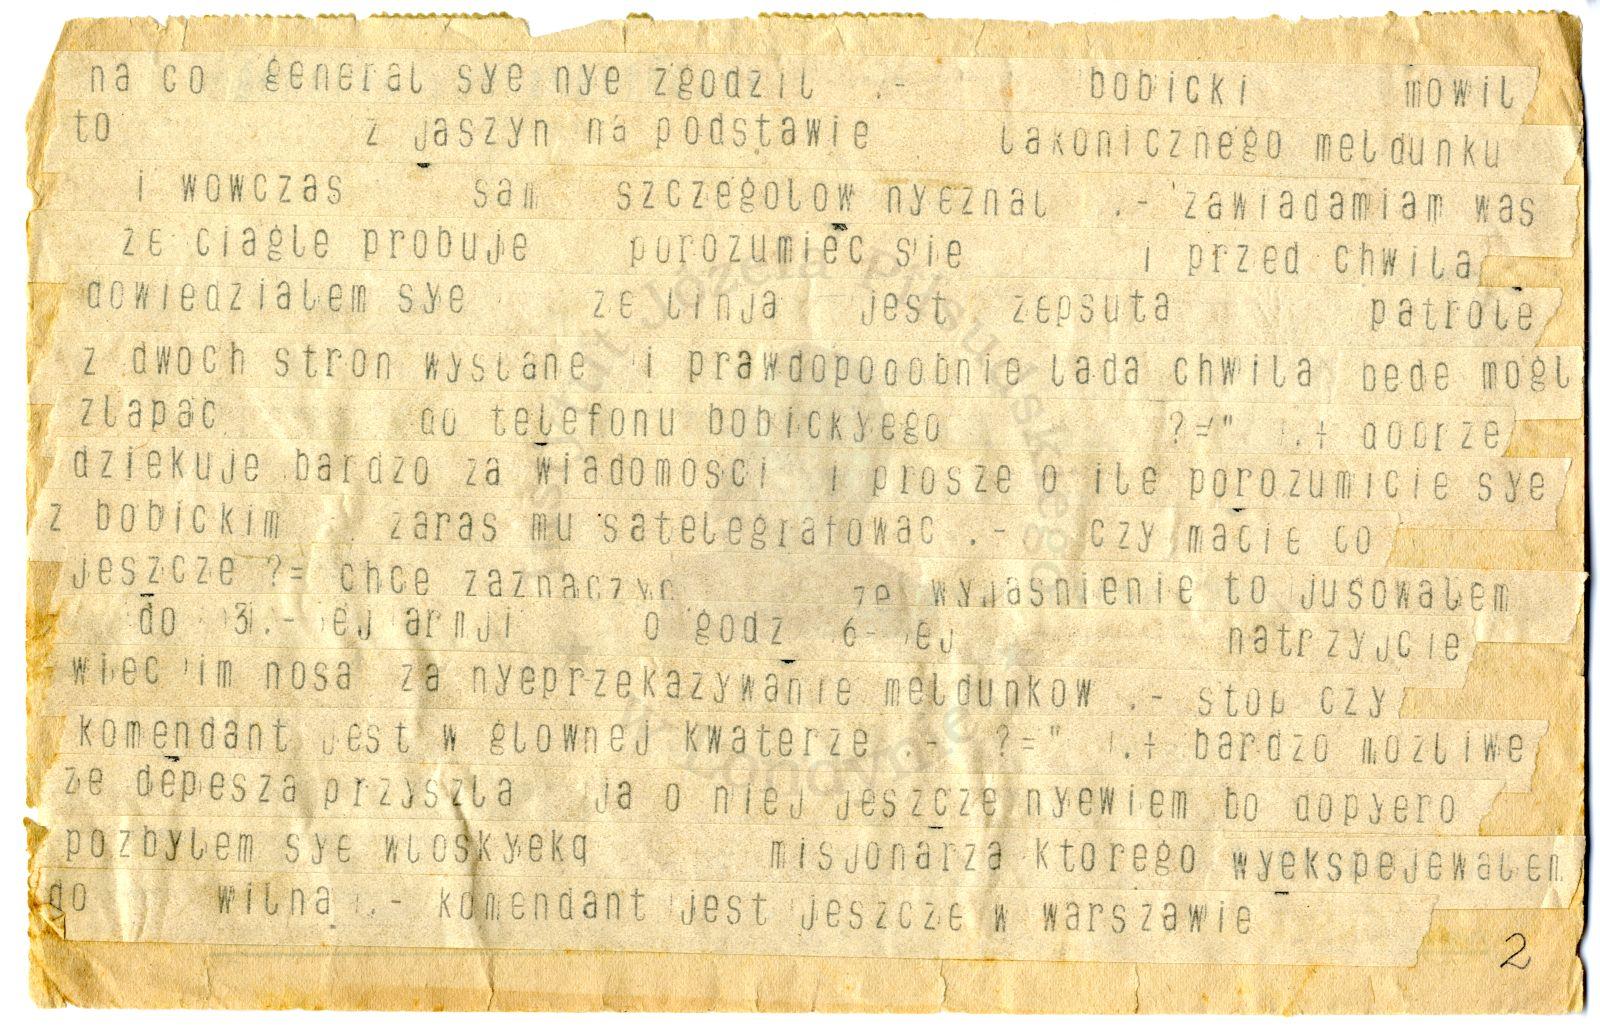 na co general sye nye zgodzil .- bobicki mowil
to z jaszyn na podstawie lakonicznego meldunku
i wowczas sam szczegolow nyeznal .- zawiadamiam was
ze ciagle probuje porozumiec sie i przed chwila
dowiedzialem sye ze linja jest zepsuta patrole
z dwoch stron wyslane i prawdopodobnie lada chwila bede mogl
zlapac do telefonu bobickyego ?=" .+ dobrze
dziekuje bardzo za wiadomosci i prosze o ile porozumicie sye
z bobickim . zaras mu satelegrafowac .- czy macie co
jeszcze ?= chce zaznaczyc ze wyjasnienie to jusowalem
do 3.- ej armji o godz 6- ej natrzyjcie
wiec im nosa za nyeprzekazywanie meldunkow .- stop czy
komendant jest w glownej kwaterze .- ?=" .+ bardzo mozliwe
ze depesza przyszla ja o niej jeszcze nyewiem bo dopyero
pozbylem sye wloskyekq misjonarza ktorego wyekspejewalem
do wilna .- komendant jest jeszcze w warszawie
2
Instytut Józefa Piłsudskiego
w Londynie